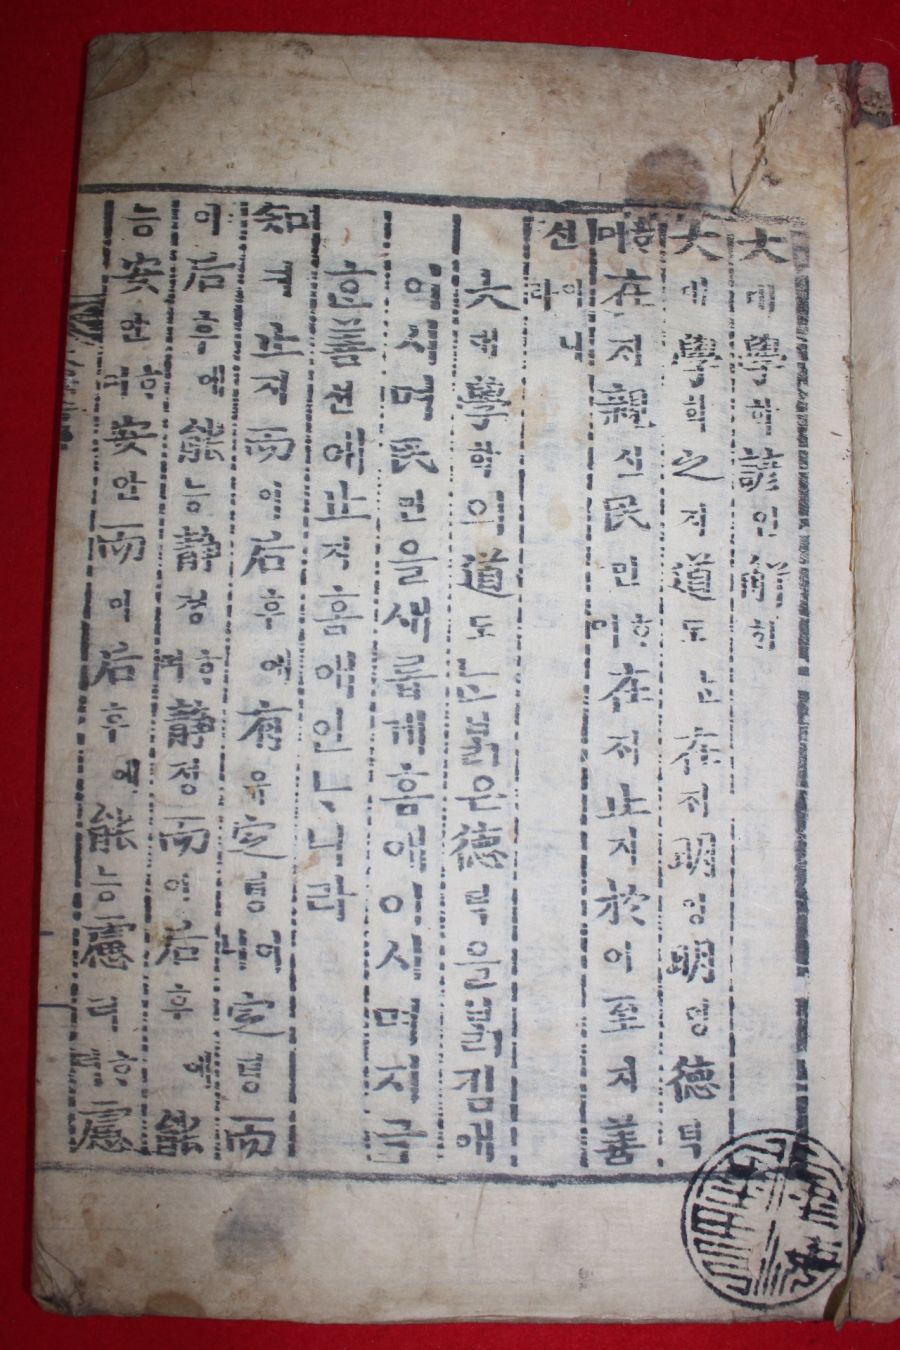 大대學ᄒᆞᆨ諺언解ᄒᆡ
大대學ᄒᆞᆨ之지道도ᄂᆞᆫ在ᄌᆡ明명明명德덕
ᄒᆞ며在ᄌᆡ親신民민ᄒᆞ며在ᄌᆡ止지於어至지善
션이니라
大대學ᄒᆞᆨ의道도ᄂᆞᆫᄇᆞᆰ은德덕을ᄇᆞᆰ킴애
이시며民민을새롭게홈애이시며지극
ᄒᆞᆫ善션에止지홈애인ᄂᆞ니라
知지止지而이后후에有유定뎡이니定뎡而
이后후에能능靜졍ᄒᆞ며靜졍而이后후에能
능安안ᄒᆞ며安안而이后후에能능慮려ᄒᆞ며慮